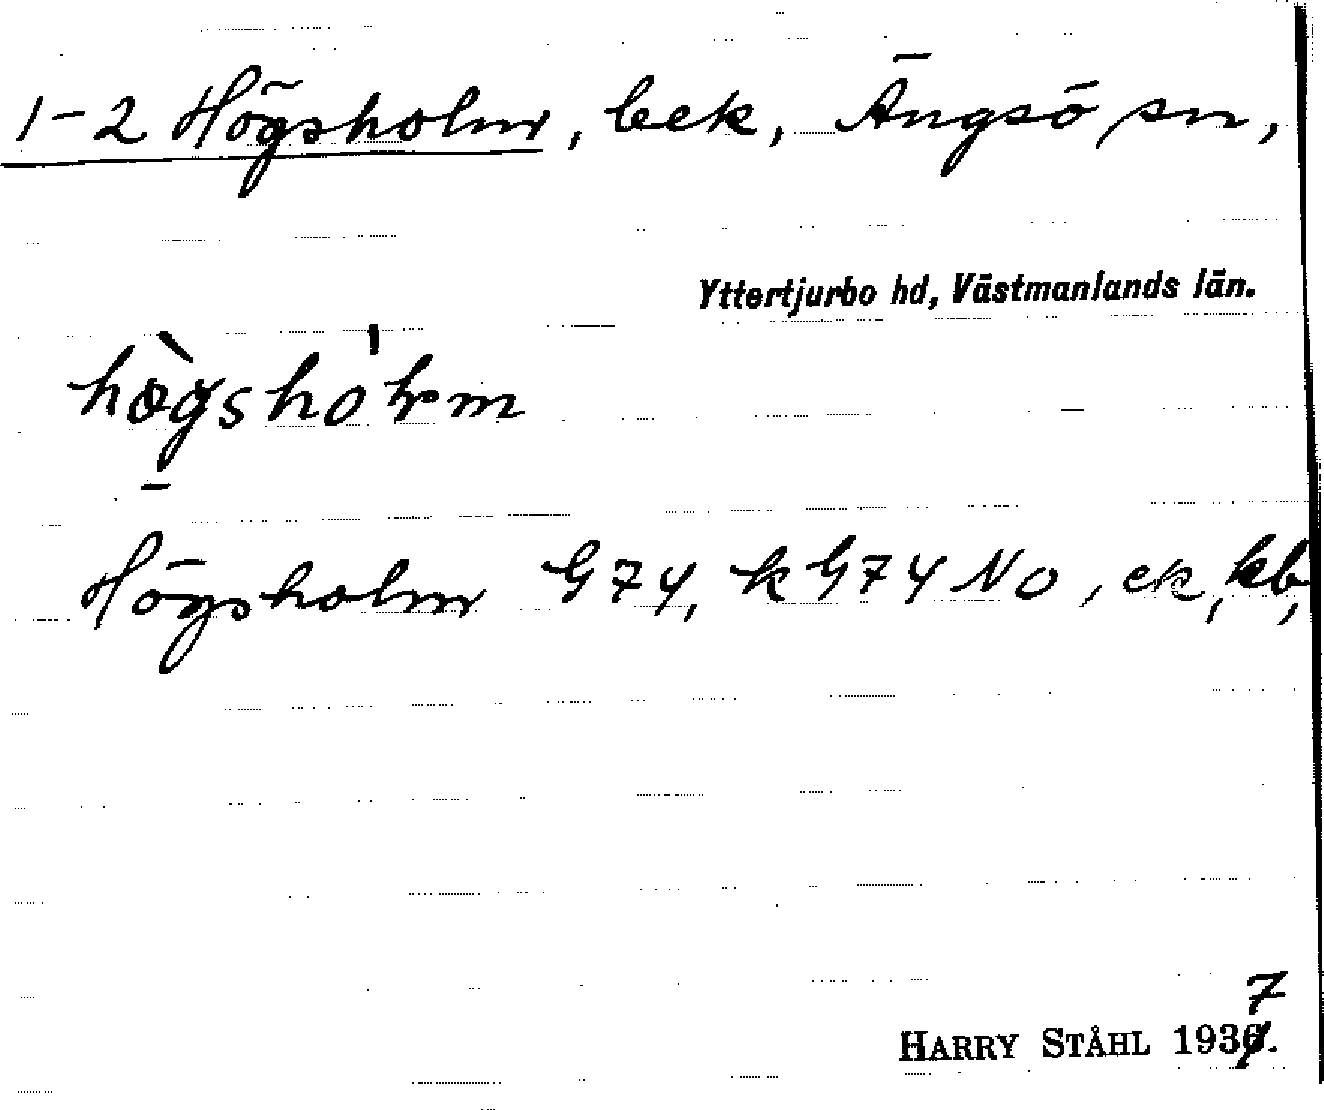 1-2 Högsholm, bek, Ängsö sn,
Yttertjurbo hd, Västmanlands län.
Högsholm G74, k G74 NO, ek, kb,
HARRY STÅHL 1937.